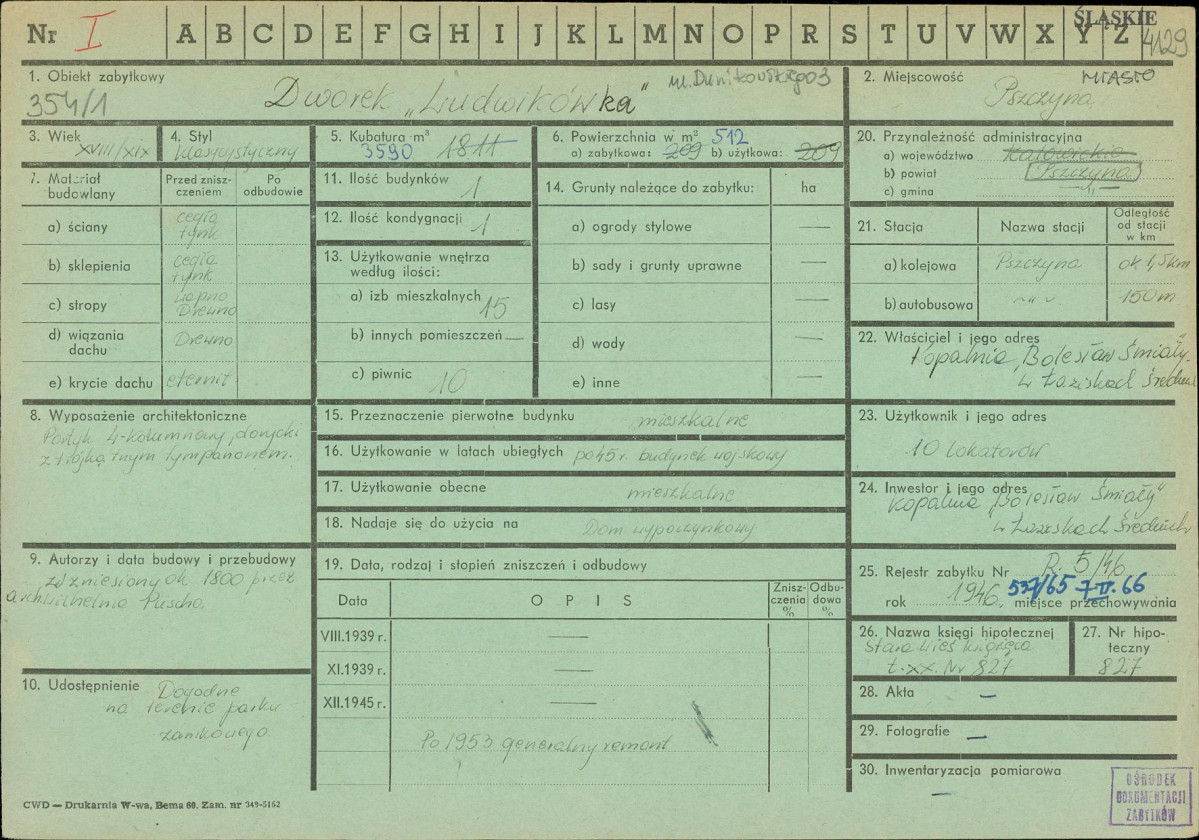 Nr I A B C D E F G H I J K L M N O P R S T U V W X Y Z
ŚLĄSKIE
4129
1. Obiekt zabytkowy
354/1
Dworek „Ludwikówka"
ul. Dunikowskiego 3
2. Miejscowość
MIASTO
Pszczyna
3. Wiek
XVIII/XIX
4. Styl
klasycystyczny
5. Kubatura m³
3590 1811
6. Powierzchnia w m² 512
a) zabytkowa: 209 b) użytkowa: 209
20. Przynależność administracyjna
a) województwo Katowickie
b) powiat Pszczyna
c) gmina —„—
7. Materiał budowlany
Przed zniszczeniem
Po odbudowie
a) ściany cegła tynk
b) sklepienia cegła tynk
c) stropy Drewno
d) wiązania dachu Drewno
e) krycie dachu eternit
11. Ilość budynków 1
12. Ilość kondygnacji 1
13. Użytkowanie wnętrza
według ilości:
a) izb mieszkalnych 15
b) innych pomieszczeń —
c) piwnic 10
14. Grunty należące do zabytku: ha
a) ogrody stylowe —
b) sady i grunty uprawne —
c) lasy —
d) wody —
e) inne
21. Stacja
Nazwa stacji
Odległość od stacji w km
a) kolejowa Pszczyna ok 1,5 km
b) autobusowa -„- 150 m
22. Właściciel i jego adres
Kopalnia „Bolesław Śmiały"
w Łaziskach Średnich
8. Wyposażenie architektoniczne
Portyk 4-kolumnowy, dorycki
z trójkątnym tympanonem.
15. Przeznaczenie pierwotne budynku mieszkalne
16. Użytkowanie w latach ubiegłych po 45 r. budynek wojskowy
17. Użytkowanie obecne mieszkalne
18. Nadaje się do użycia na Dom wypoczynkowy
23. Użytkownik i jego adres
10 lokatorów
24. Inwestor i jego adres
Kopalnia „Bolesław Śmiały"
w Łaziskach Średnich
9. Autorzy i data budowy i przebudowy
wzniesiony ok 1800 przez
arch. Wilhelma Puscha.
19. Data, rodzaj i stopień zniszczeń i odbudowy
Data
O P I S
Zniszczenia %
Odbudowa %
VIII.1939 r. —
XI.1939 r. —
XII.1945 r. —
Po 1953 generalny remont
25. Rejestr zabytku Nr R. 5/46
537/65 7 II. 66
rok 1946, miejsce przechowywania
26. Nazwa księgi hipotecznej
Stara Wieś
t. XX. Nr 827
27. Nr hipoteczny
827
10. Udostępnienie Dogodne
na terenie parku
zamkowego.
28. Akta —
29. Fotografie —
30. Inwentaryzacja pomiarowa
—
CWD — Drukarnia W-wa, Bema 60. Zam. nr 349-5162
OŚRODEK
DOKUMENTACJI
ZABYTKÓW